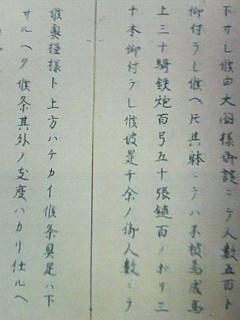 下サレ候由大閤様御諚ニテ人数五百ト
御付ラレ候ヘ共其躰ニテハ不被為成馬
上三十騎鉄炮百弓五十張鑓百ノホリ三
十本御付ラレ候彼是千余ノ御人数ニテ
候奥筋様ト上方ハチカイ候条具足ハ下
サルヘク候条其外ノ支度ハカリ仕ルヘ